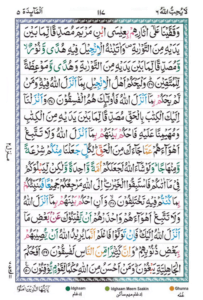 لا يحب الله ٦ ١١٧ المآئدة ٥
وَقَفَّيْنَا عَلٰٓى اٰثَارِهِمْ بِعِيْسَى ابْنِ مَرْيَمَ مُصَدِّقًا لِّمَا بَيْنَ
يَدَيْهِ مِنَ التَّوْرٰىةِ وَاٰتَيْنٰهُ الْاِنْجِيْلَ فِيْهِ هُدًى وَّنُوْرٌ
وَّمُصَدِّقًا لِّمَا بَيْنَ يَدَيْهِ مِنَ التَّوْرٰىةِ وَهُدًى وَّمَوْعِظَةً
لِّلْمُتَّقِيْنَ وَلْيَحْكُمْ اَهْلُ الْاِنْجِيْلِ بِمَآ اَنْزَلَ اللّٰهُ فِيْهِ وَمَنْ
لَّمْ يَحْكُمْ بِمَآ اَنْزَلَ اللّٰهُ فَاُولٰٓئِكَ هُمُ الْفٰسِقُوْنَ وَاَنْزَلْنَآ
اِلَيْكَ الْكِتٰبَ بِالْحَقِّ مُصَدِّقًا لِّمَا بَيْنَ يَدَيْهِ مِنَ الْكِتٰبِ
وَمُهَيْمِنًا عَلَيْهِ فَاحْكُمْ بَيْنَهُمْ بِمَآ اَنْزَلَ اللّٰهُ وَلَا تَتَّبِعْ
اَهْوَآءَهُمْ عَمَّا جَآءَكَ مِنَ الْحَقِّ لِكُلٍّ جَعَلْنَا مِنْكُمْ شِرْعَةً
وَّمِنْهَاجًا وَلَوْ شَآءَ اللّٰهُ لَجَعَلَكُمْ اُمَّةً وَّاحِدَةً وَّلٰكِنْ لِّيَبْلُوَكُمْ
فِيْ مَآ اٰتٰىكُمْ فَاسْتَبِقُوا الْخَيْرٰتِ اِلَى اللّٰهِ مَرْجِعُكُمْ جَمِيْعًا فَيُنَبِّئُكُمْ
بِمَا كُنْتُمْ فِيْهِ تَخْتَلِفُوْنَ وَاَنِ احْكُمْ بَيْنَهُمْ بِمَآ اَنْزَلَ اللّٰهُ وَلَا تَتَّبِعْ
اَهْوَآءَهُمْ وَاحْذَرْهُمْ اَنْ يَّفْتِنُوْكَ عَنْ بَعْضِ مَآ
اَنْزَلَ اللّٰهُ اِلَيْكَ فَاِنْ تَوَلَّوْا فَاعْلَمْ اَنَّمَا يُرِيْدُ اللّٰهُ اَنْ يُّصِيْبَهُمْ
بِبَعْضِ ذُنُوْبِهِمْ وَاِنَّ كَثِيْرًا مِّنَ النَّاسِ لَفٰسِقُوْنَ اَفَحُكْمَ
الْجَاهِلِيَّةِ يَبْغُوْنَ وَمَنْ اَحْسَنُ مِنَ اللّٰهِ حُكْمًا لِّقَوْمٍ يُّوْقِنُوْنَ
Idgham Idgham Meem Saakin Ghunna